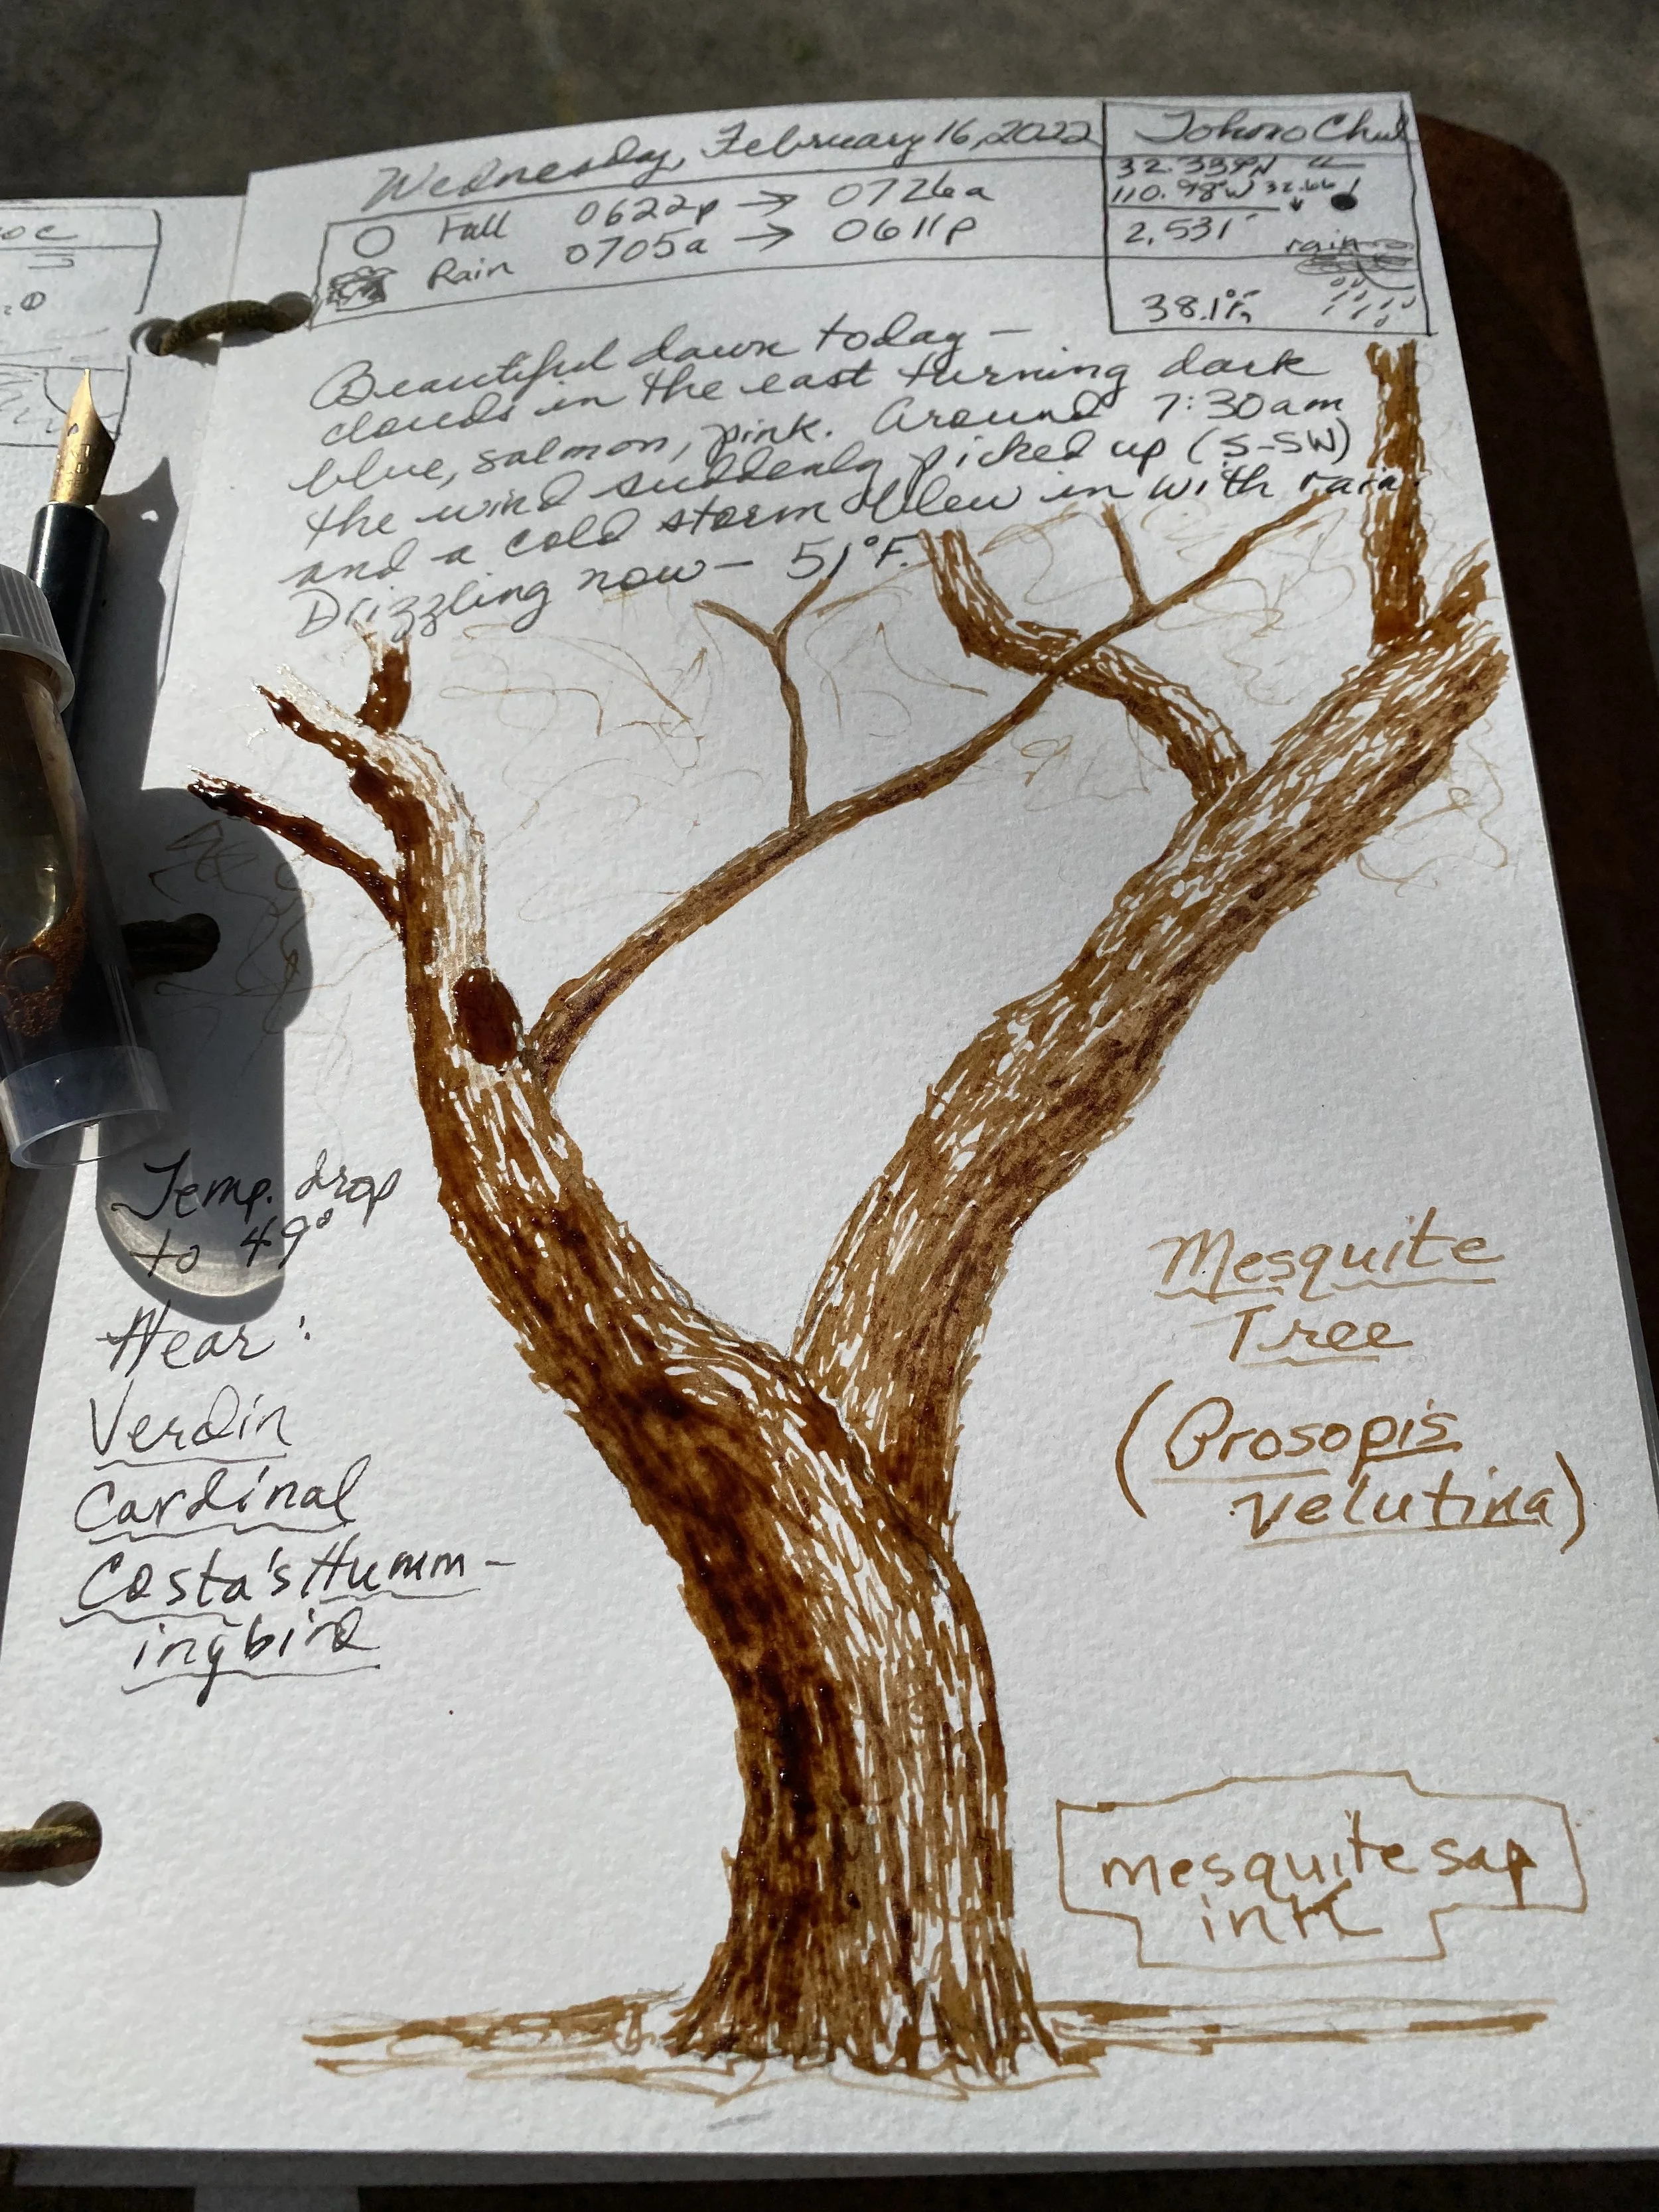 Wednesday, February 16, 2022
Full 0622p → 0726a
Rain 0705a → 0611p
Tohono Chul
32.339°N
110.98°W 32.66
2,531'
rain
38.1°F
Beautiful dawn today —
clouds in the east turning dark
blue, salmon, pink. Around 7:30am
the wind suddenly picked up (S-SW)
and a cold storm blew in with rain.
Drizzling now — 51°F.
Temp. drop
to 49°
Hear:
Verdin
Cardinal
Costa's Humm-
ingbird
Mesquite
Tree
(Prosopis
velutina)
mesquite sap
ink